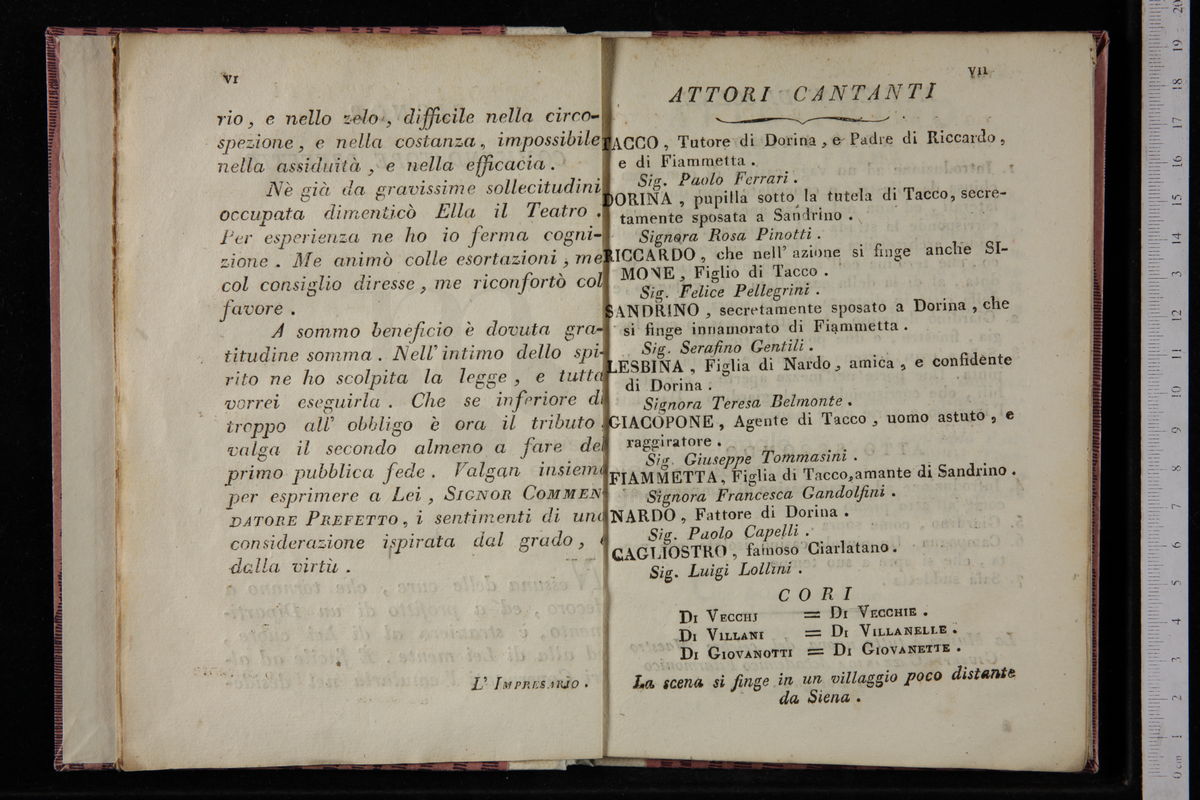 VI
rio, e nello zelo, difficile nella circo-
spezione, e nella costanza, impossibile
nella assiduità, e nella efficacia.
Nè già da gravissime sollecitudini
occupata dimenticò Ella il Teatro.
Per esperienza ne ho io ferma cogni-
zione. Me animò colle esortazioni, me
col consiglio diresse, me riconfortò col
favore.
A sommo beneficio è dovuta gra-
titudine somma. Nell' intimo dello spi-
rito ne ho scolpita la legge, e tutta
vorrei eseguirla. Che se inferiore di
troppo all' obbligo è ora il tributo,
valga il secondo almeno a fare del
primo pubblica fede. Valgan insieme
per esprimere a Lei, SIGNOR COMMEN-
DATORE PREFETTO, i sentimenti di una
considerazione ispirata dal grado, e
dalla virtù.
L' IMPRESARIO.
VII
ATTORI CANTANTI
TACCO, Tutore di Dorina, e Padre di Riccardo,
e di Fiammetta.
Sig. Paolo Ferrari.
DORINA, pupilla sotto la tutela di Tacco, secre-
tamente sposata a Sandrino.
Signora Rosa Pinotti.
RICCARDO, che nell' azione si finge anche SI-
MONE, Figlio di Tacco.
Sig. Felice Pellegrini.
SANDRINO, secretamente sposato a Dorina, che
si finge innamorato di Fiammetta.
Sig. Serafino Gentili.
LESBINA, Figlia di Nardo, amica, e confidente
di Dorina.
Signora Teresa Belmonte.
GIACOPONE, Agente di Tacco, uomo astuto, e
raggiratore.
Sig. Giuseppe Tommasini.
FIAMMETTA, Figlia di Tacco, amante di Sandrino.
Signora Francesca Gandolfini.
NARDO, Fattore di Dorina.
Sig. Paolo Capelli.
CAGLIOSTRO, famoso Ciarlatano.
Sig. Luigi Lollini.
CORI
DI VECCHJ = DI VECCHIE.
DI VILLANI = DI VILLANELLE.
DI GIOVANOTTI = DI GIOVANETTE.
La scena si finge in un villaggio poco distante
da Siena.